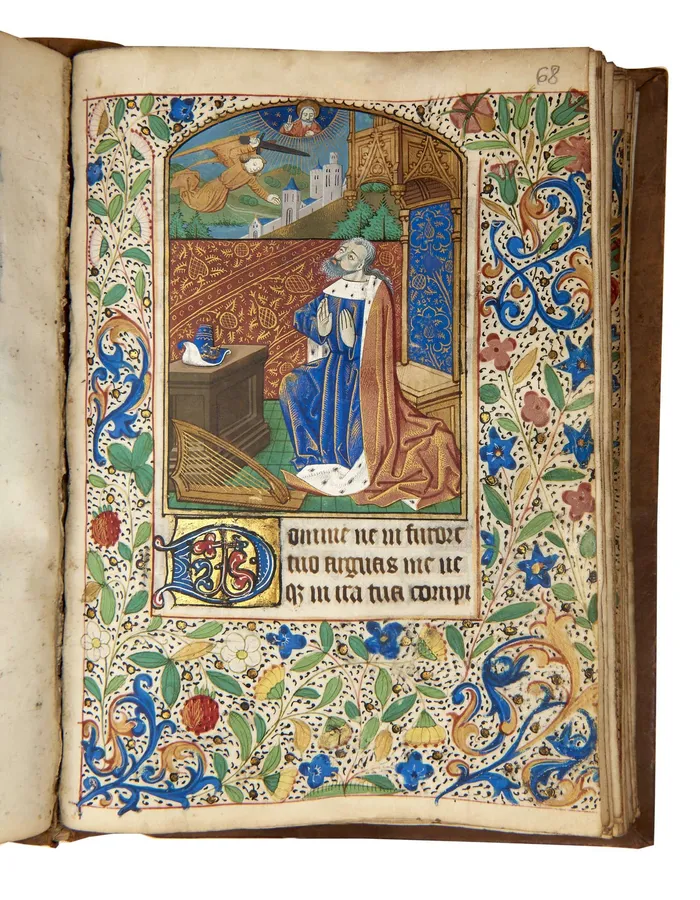 68
Domine ne in furore
tuo arguas me ne
qz in ira tua corripi